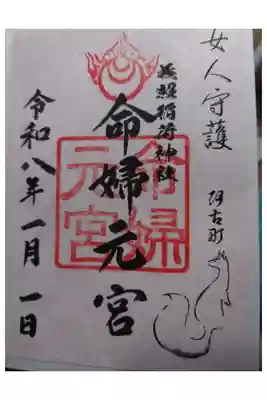 女人守護
阿古町
稲荷神社
命婦元宮
命婦元宮
令和八年一月一日